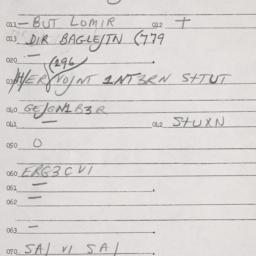 011 — BUT LOMIR 012 +
013 DIR BAGLE/TN (779
020 —
(196
030 HER VO/NT 1NT3RN S+TUT
040 GE/GN1B3R
041 — 042 S+UXN
050 O
060 ERG3CVI
061 —
062 —
063 —
070 SA/ VI SA/